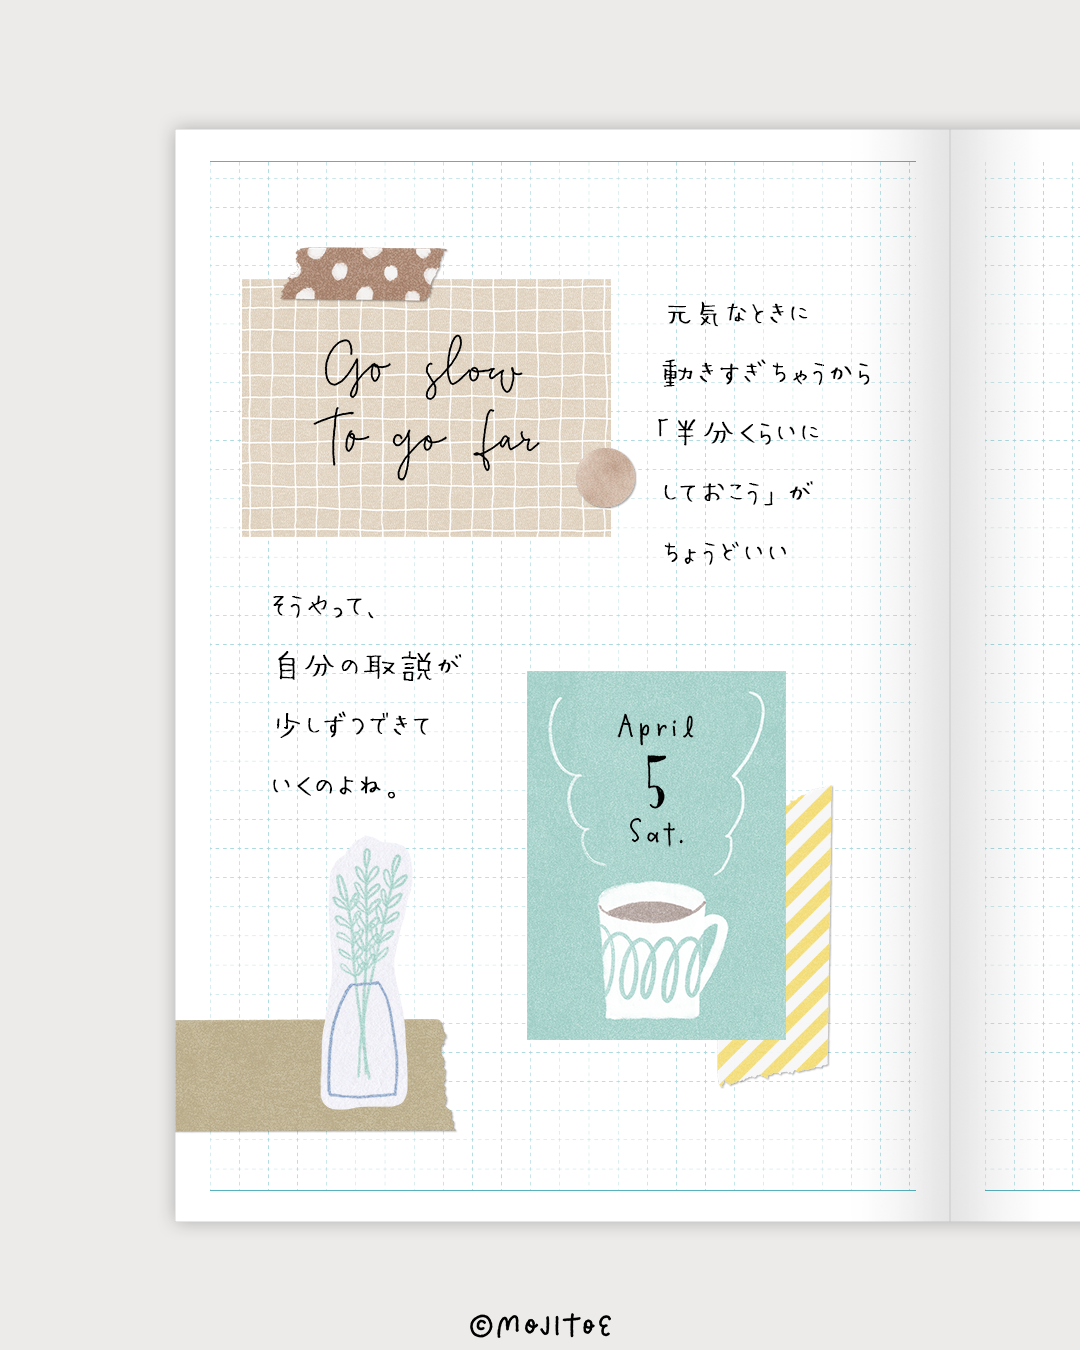 Go slow
to go far
元気なときに
動きすぎちゃうから
「半分くらいに
しておこう」が
ちょうどいい
そうやって、
自分の取説が
少しずつできて
いくのよね。
April
5
Sat.
©MOJITOE